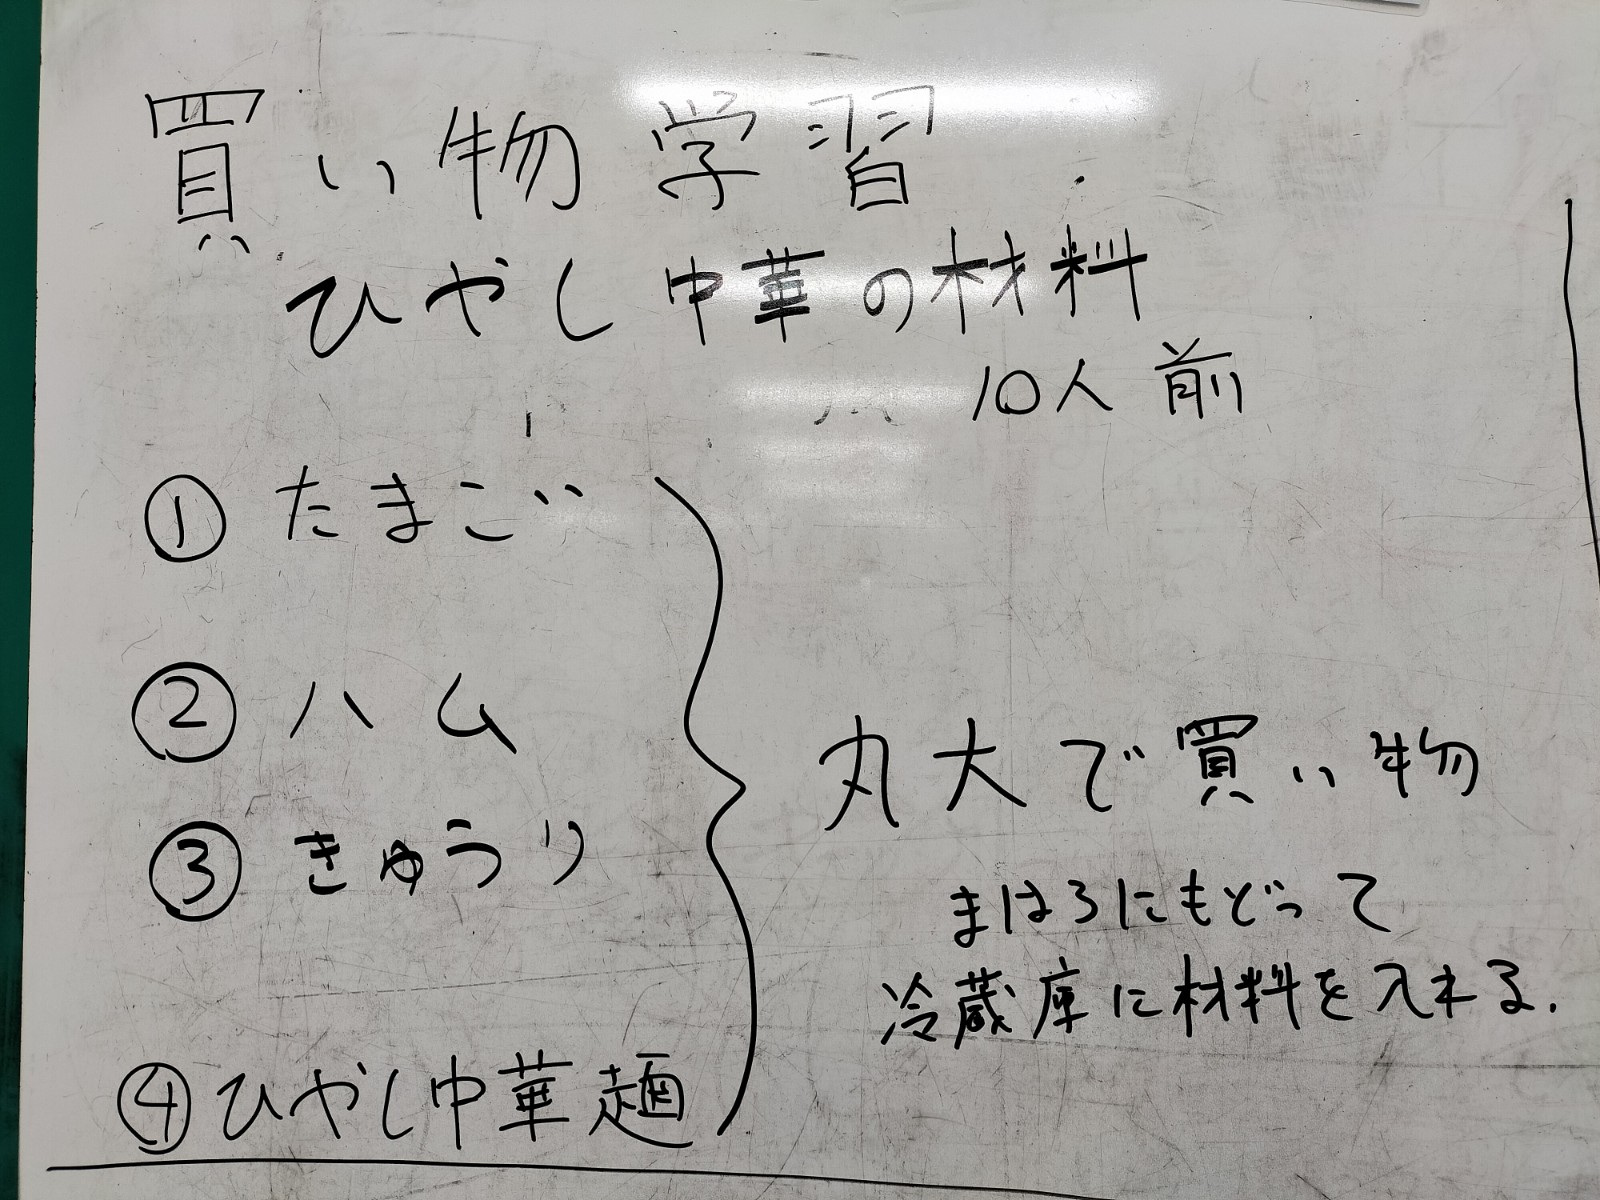 買い物学習
ひやし中華の材料
10人前
① たまご
② ハム
③ きゅうり
④ ひやし中華麺
丸大で買い物
まほろにもどって
冷蔵庫に材料を入れる.